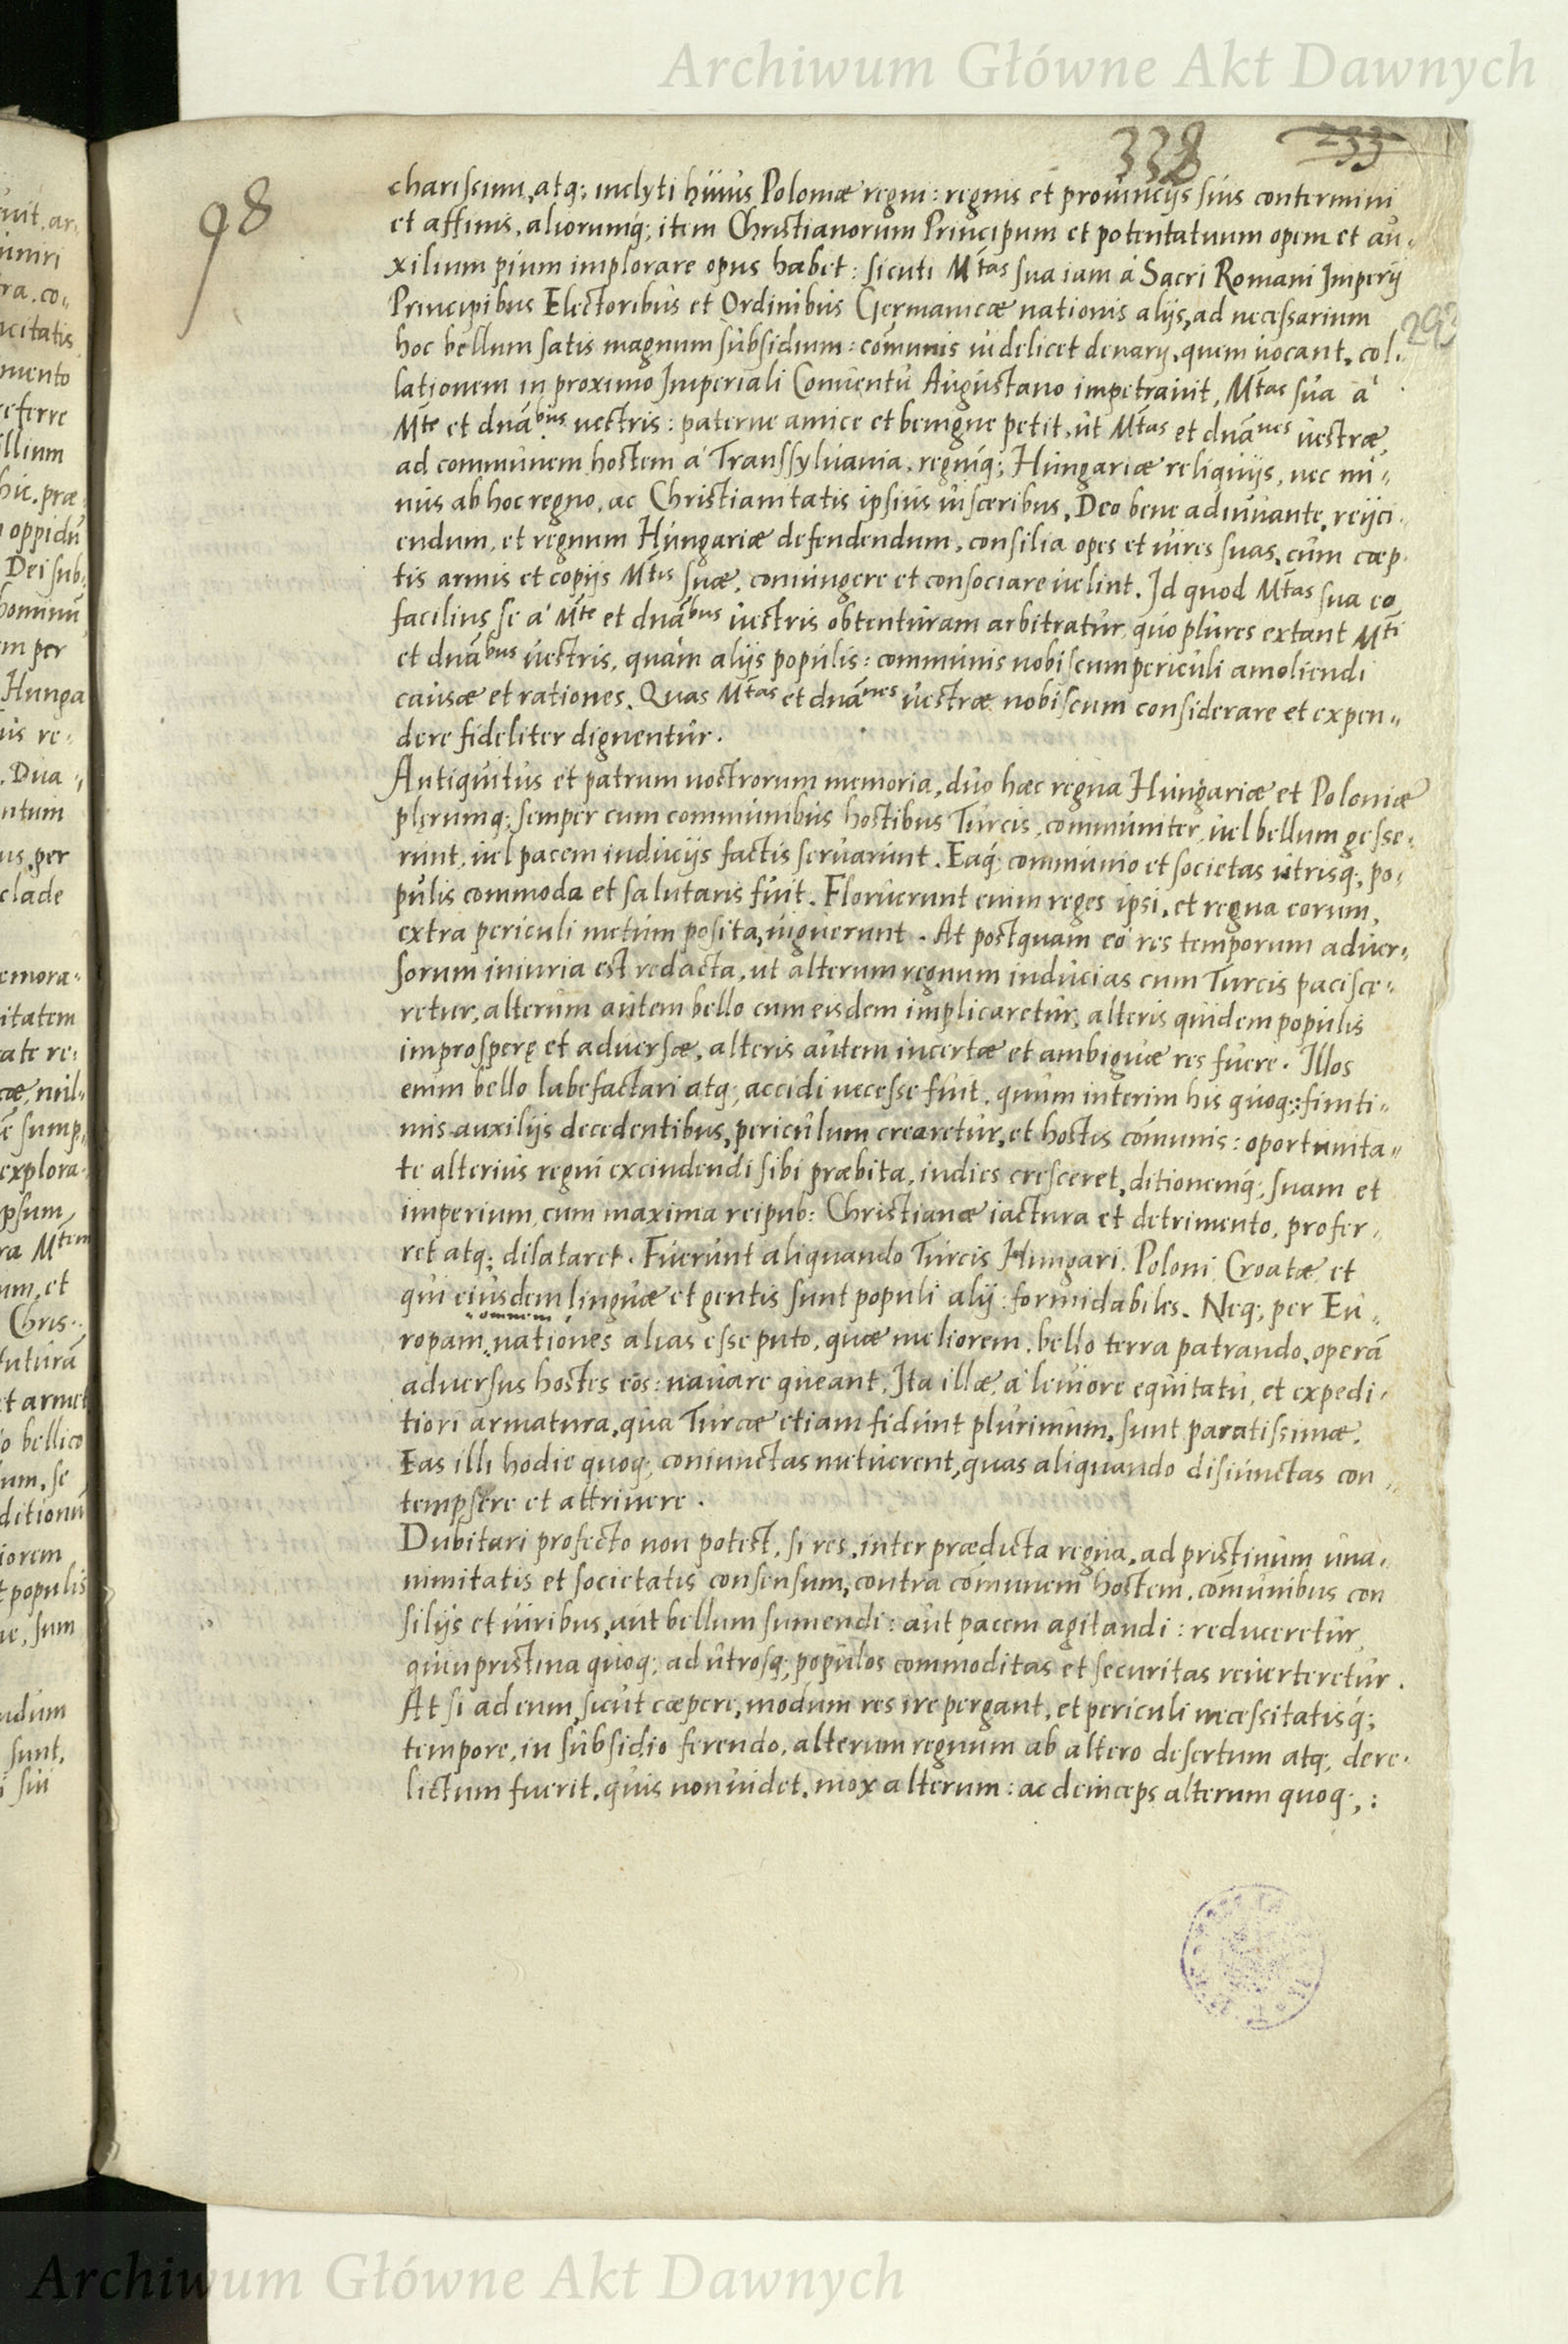 Archiwum Główne Akt Dawnych
338 233
98
charissimi, atq; inclyti huius Poloniæ regni: regnis et prouincijs suis contermini
et affinis, aliorumq; item Christianorum Principum et potentatuum opem et au„
xilium pium implorare opus habet: sicuti Mtas sua iam á Sacri Romani Imperij
Principibus Electoribus et Ordinibus Germanicæ nationis alijs, ad necessarium
hoc bellum satis magnum subsidium: comunis uidelicet denarij, quem uocant, col„
lationem in proximo Imperiali Conuentu Augustano impetrauit, Mtas sua à
Mte et dnābus uestris: paterne amice et benigne petit, ut Mtas et dnānes uestræ
ad communem hostem á Transsyluania, regniq; Hungariæ reliquijs, nec mi„
nus ab hoc regno, ac Christianitatis ipsius uisceribus, Deo bene adiuuante, reijci„
endum, et regnum Hungariæ defendendum, consilia opes et uires suas, cum cœp„
tis armis et copijs Mtis suæ, coniungere et consociare uelint. Id quod Mtas sua eo
facilius se á Mte et dnābus uestris obtenturam arbitratur, quo plures extant Mti
et dnābus uestris, quàm alijs populis: communis nobiscum periculi amoliendi
causæ et rationes. Quas Mtas et dnānes uestræ nobiscum considerare et expen„
dere fideliter dignentur.
Antiquitus et patrum nostrorum memoria, duo hæc regna Hungariæ et Poloniæ
plerumq; semper cum communibus hostibus Turcis, communiter, uel bellum gesse„
runt, uel pacem inducijs factis seruarunt. Eaq; communio et societas utrisq; po„
pulis commoda et salutaris fuit. Floruerunt enim reges ipsi, et regna eorum,
extra periculi metum posita, uiguerunt. At postquam eò res temporum aduer„
sorum iniuria est redacta, ut alterum regnum inducias cum Turcis pacisce„
retur, alterum autem bello cum eisdem implicaretur, alteris quidem populis
improsperę et aduersæ, alteris autem incertæ et ambiguæ res fuere. Illos
enim bello labefactari atq; accidi necesse fuit, quum interim his quoq;: finiti„
mis auxilijs decedentibus, periculum crearetur, et hostis comunis: oportunita„
te alterius regni excindendi sibi præbita, indies cresceret, ditionemq; suam et
imperium, cum maxima reipub: Christianæ iactura et detrimento, profer„
ret atq; dilataret. Fuerunt aliquando Turcis Hungari, Poloni, Croatæ, et
qui eiusdem linguæ et gentis sunt populi alij: formidabiles. Neq; per Eu„
ropam omnem nationes alias esse puto, quæ meliorem, bello terra patrando, operā
aduersus hostes eos: nauare queant. Ita illæ, á leuiore equitatu, et expedi„
tiori armatura, qua Turcæ etiam fidunt plurimum, sunt paratissimæ.
Eas illi hodie quoq; coniunctas metuerent, quas aliquando disiunctas con„
tempsere et attriuere.
Dubitari profecto non potest, si res, inter prædicta regna, ad pristinum una„
nimitatis et societatis consensum, contra comunem hostem, comunibus con
silijs et uiribus, aut bellum sumendi: aut pacem agitandi: reduceretur,
quin pristina quoq; ad utrosq; populos commoditas et securitas reuerteretur.
At si ad eum, sicut cœpere, modum res ire pergant, et periculi necessitatisq;
tempore, in subsidio ferendo, alterum regnum ab altero desertum atq; dere„
lictum fuerit, quis non uidet, mox alterum: ac deinceps alterum quoq;:
Archiwum Główne Akt Dawnych